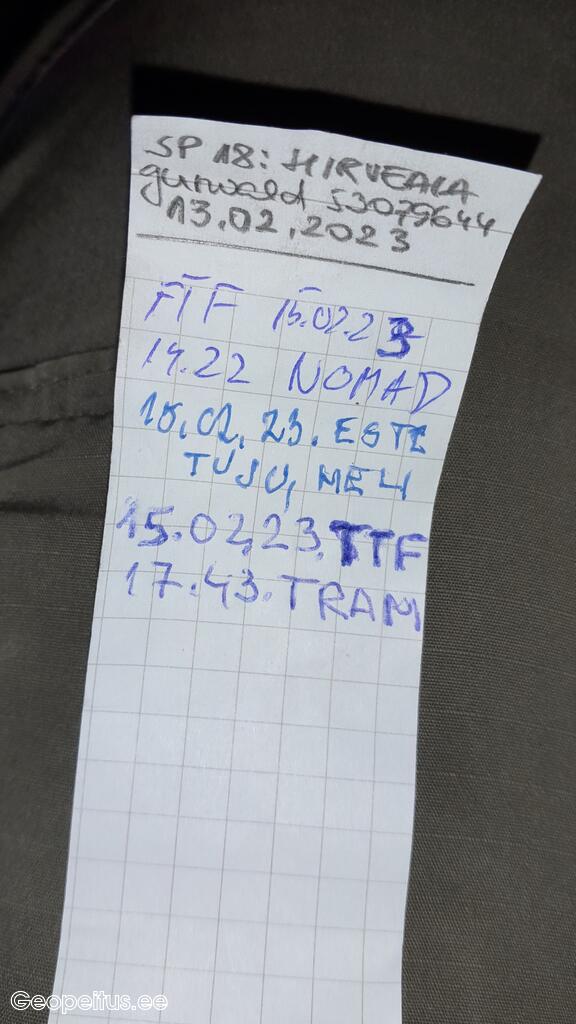 SP 18: HIRVEALA
gunwald 53079644
13.02.2023
FTF 15.02.23
14.22 NOMAD
15.02.23. ESTE
TUSU, MELI
15.02.23. TTF
17.43. TRAM
Geopeitus.ee